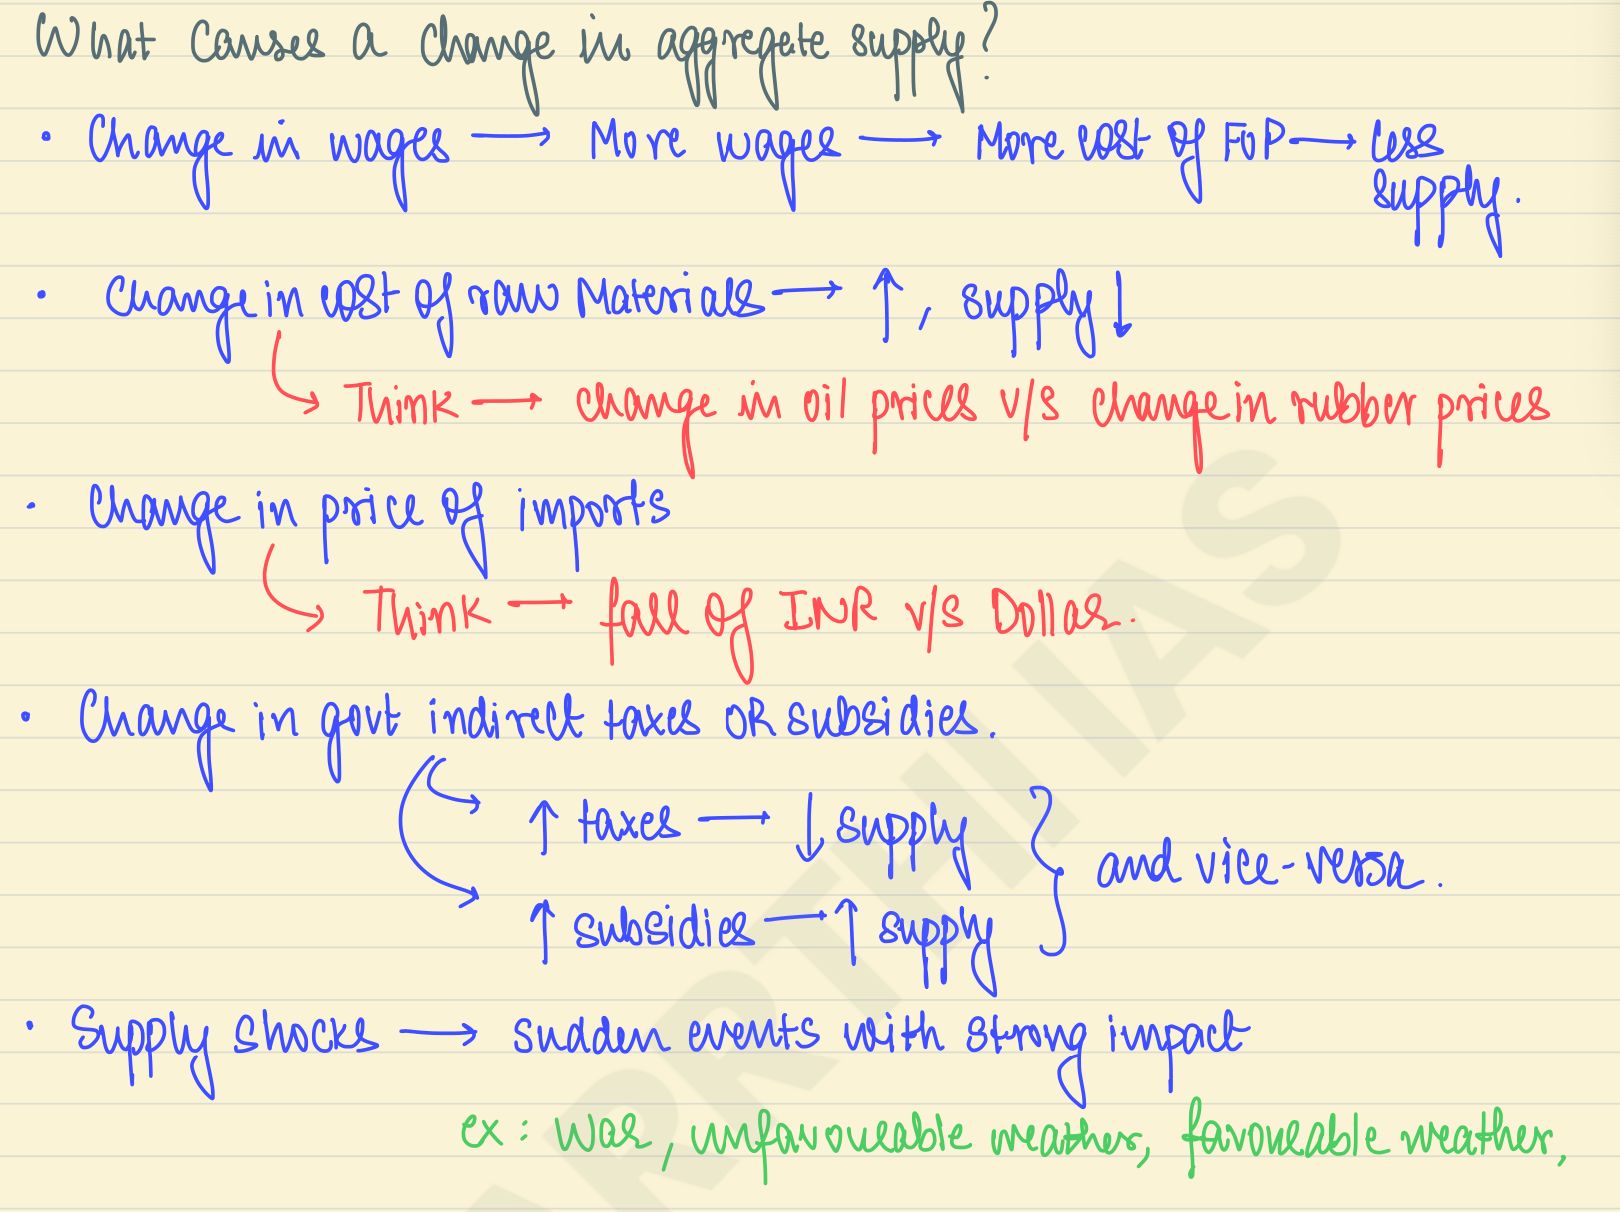 What causes a change in aggregate supply?
• Change in wages → More wages → More cost of FoP → less
supply.
• Change in cost of raw Materials → ↑, supply ↓
Think → change in oil prices v/s change in rubber prices
• Change in price of imports
Think → fall of INR v/s Dollar.
• Change in govt indirect taxes OR subsidies.
↑ taxes → ↓ supply
and vice-versa.
↑ subsidies → ↑ supply
• Supply shocks → sudden events with strong impact
ex: War, unfavourable weather, favourable weather,
ARTHI IAS